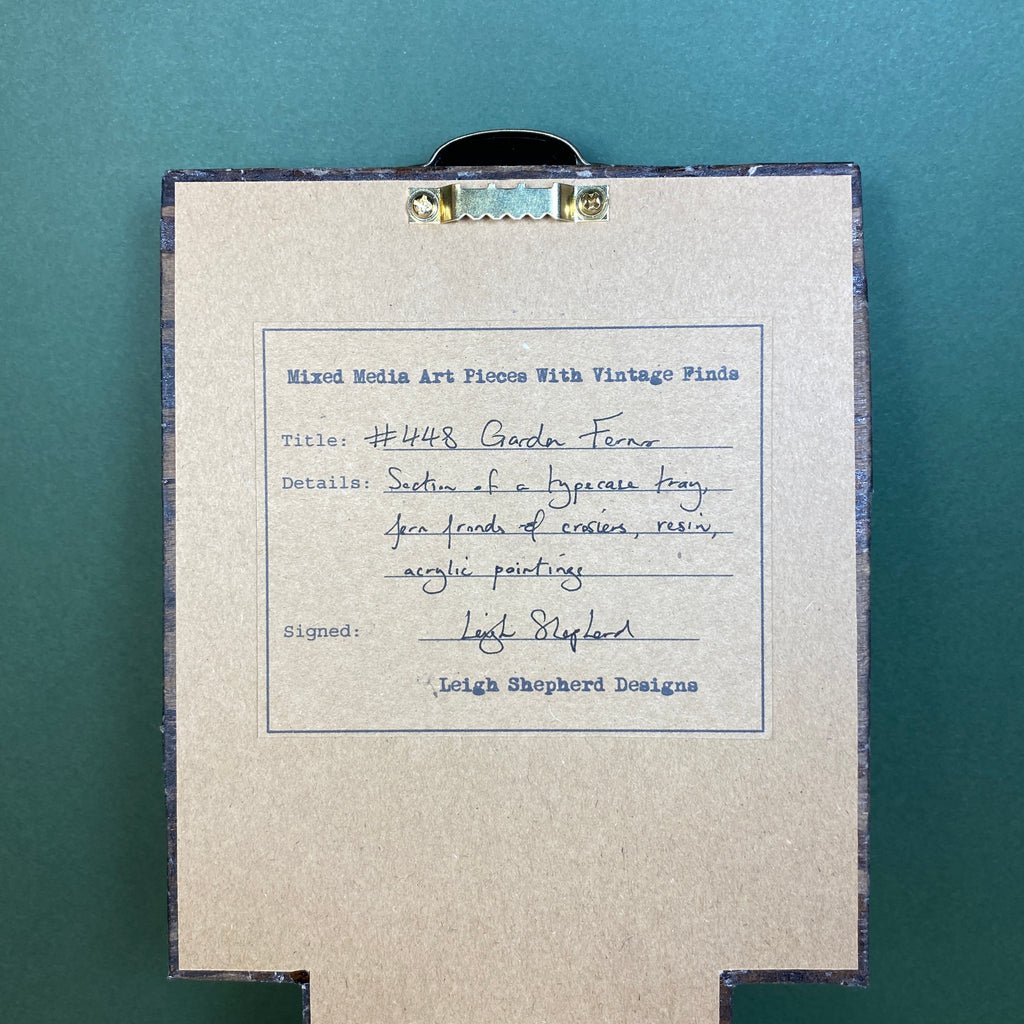 Mixed Media Art Pieces With Vintage Finds
Title: #448 Garden Ferns
Details: Section of a typecase tray,
fern fronds & crosiers, resin,
acrylic paintings
Signed: Leigh Shepherd
Leigh Shepherd Designs